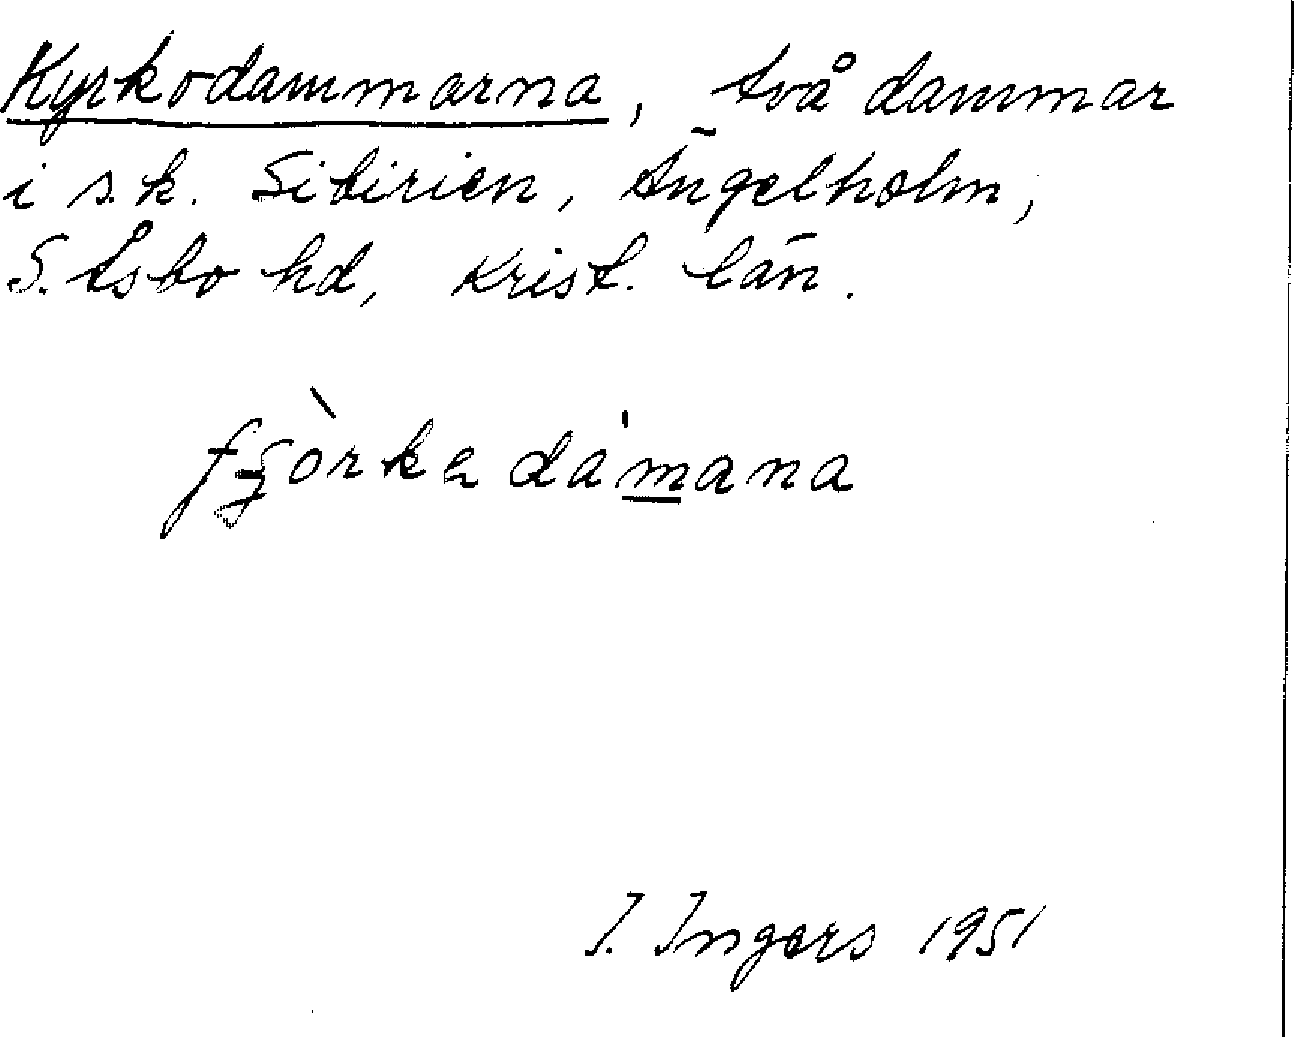 Kyrkodammarna, två dammar
i s.k. Sibirien, Ängelholm,
S. Åsbo hd, Krist. län.
I. Ingers 1951